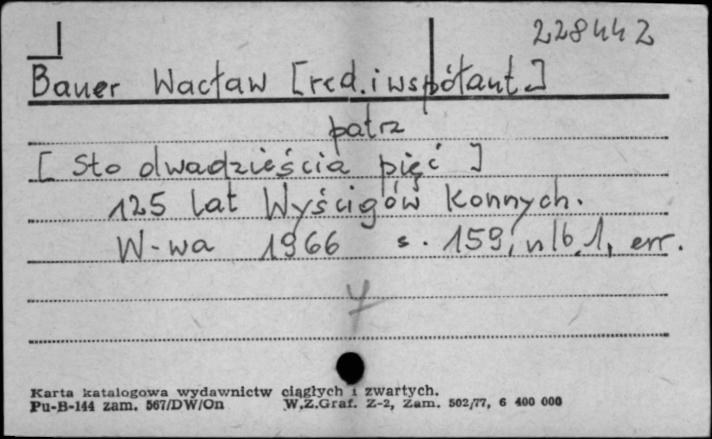 228442
Bauer Wacław [red. i współaut.]
patrz
[Sto dwadzieścia pięć]
125 lat Wyścigów Konnych.
W-wa 1966 s. 159, nlb. 1, err.
Karta katalogowa wydawnictw ciągłych i zwartych.
Pu-B-144 zam. 567/DW/On W.Z.Graf. Z-2, Zam. 502/77, 6 400 000